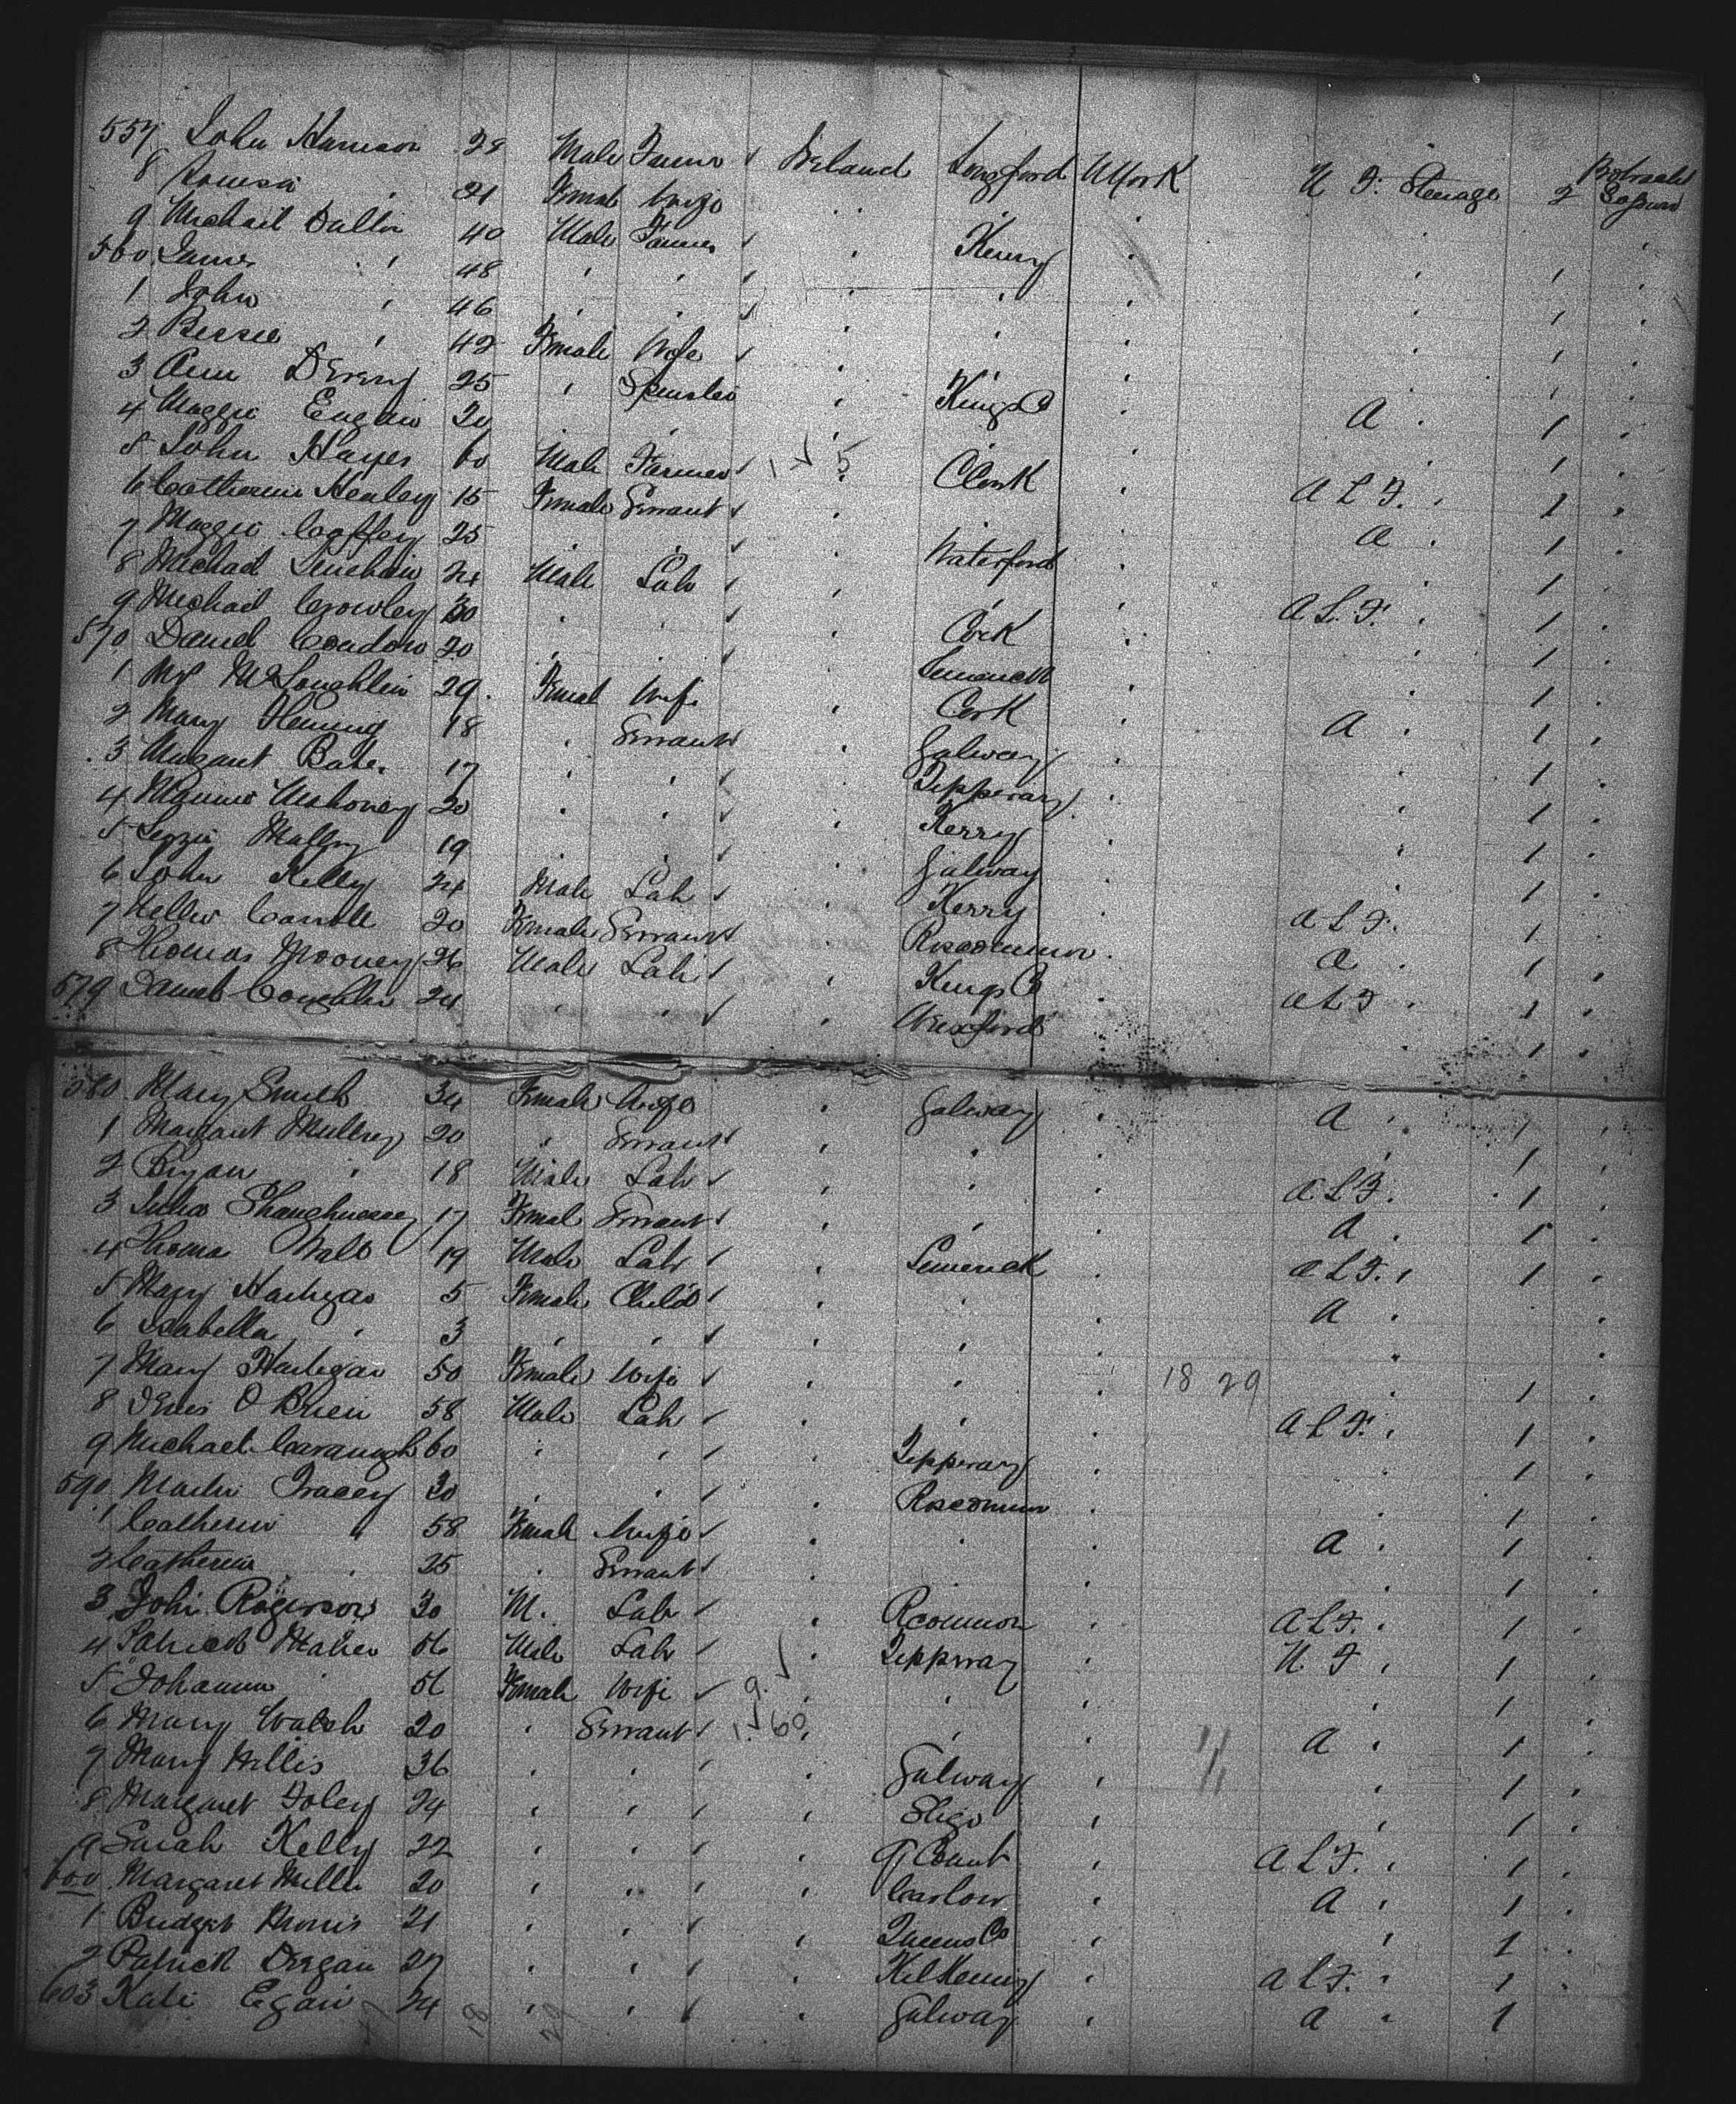 557 John Harrison 28 Male Farmer Ireland Longford NYork U.F. Steerage 2 Protracted Sojourn
8 Louisa " 21 Female Wife
9 Michael Dalton 40 Male Farmer Kerry 1
560 James " 48 " " 1
1 John " 46 " " 1
2 Bessie " 42 Female Wife 1
3 Ann Dreny 25 " Spinster Kings Co A 1
4 Maggie 20 " " 1
5 John Hayes 60 Male Farmer 1 5 Clark A L F. 1
6 Catherine Henley 15 Female Servant A 1
7 Maggie Caffery 25 " " Waterford 1
8 Michael Linehan 24 Male Lab A L F. 1
9 Michael Crowley 30 " " Cork 1
570 Daniel Condon 20 " " Limerick 1
1 Mrs McLoughlin 29 Female Wife Cork A 1
2 Mary Fleming 18 " Servant Galway 1
3 Margaret Bates 17 " " Tipperary 1
4 Mahoney 20 " " Kerry 1
5 Lizzie Malley 19 " " Galway 1
6 John Kelly 24 Male Lab Kerry A L F. 1
7 Nellie Carroll 20 Female Servant Roscommon A 1
8 Thomas Mooney 26 Male Lab Kings Co A L F 1
579 Daniel Coughlin 24 " " Wexford 1
580 Mary Smith 34 Female Wife Galway A 1
1 Margaret Mulkey 20 " Servant 1
2 Bryan " 18 Male Lab A L F. 1
3 Julia Shaughnessy 17 Female Servant A 1
4 Thomas Wall 19 Male Lab Limerick A L F. 1
5 Mary Hartigan 5 Female Child A
6 Isabella " 3 " "
7 Mary Hartigan 50 Female Wife 18 29 1
8 Denis O Brien 58 Male Lab A L F. 1
9 Michael Cavanagh 60 " " Tipperary 1
590 Martin Tracey 30 " " Roscommon 1
1 Catherine " 58 Female Wife A 1
2 Catherine " 25 " Servant 1
3 John Rogerson 30 M. Lab Rcommon A L F. 1
4 Patrick Maher 56 Male Lab Tipperary U. F 1
5 Johanna " 56 Female Wife 9. 1
6 Mary Walsh 20 " Servant 1 60 A 1
7 Mary Willis 36 " " Galway 1
8 Margaret Foley 24 " " Sligo 1
9 Sarah Kelly 22 " " A L F. 1
600 Margaret Miller 20 " " Carlow A 1
1 Bridget Morris 21 " " Queens Co 1
2 Patrick Dergan 27 " " Kilkenny A L F. 1
603 Kate Egan 24 18 29 " " Galway A 1